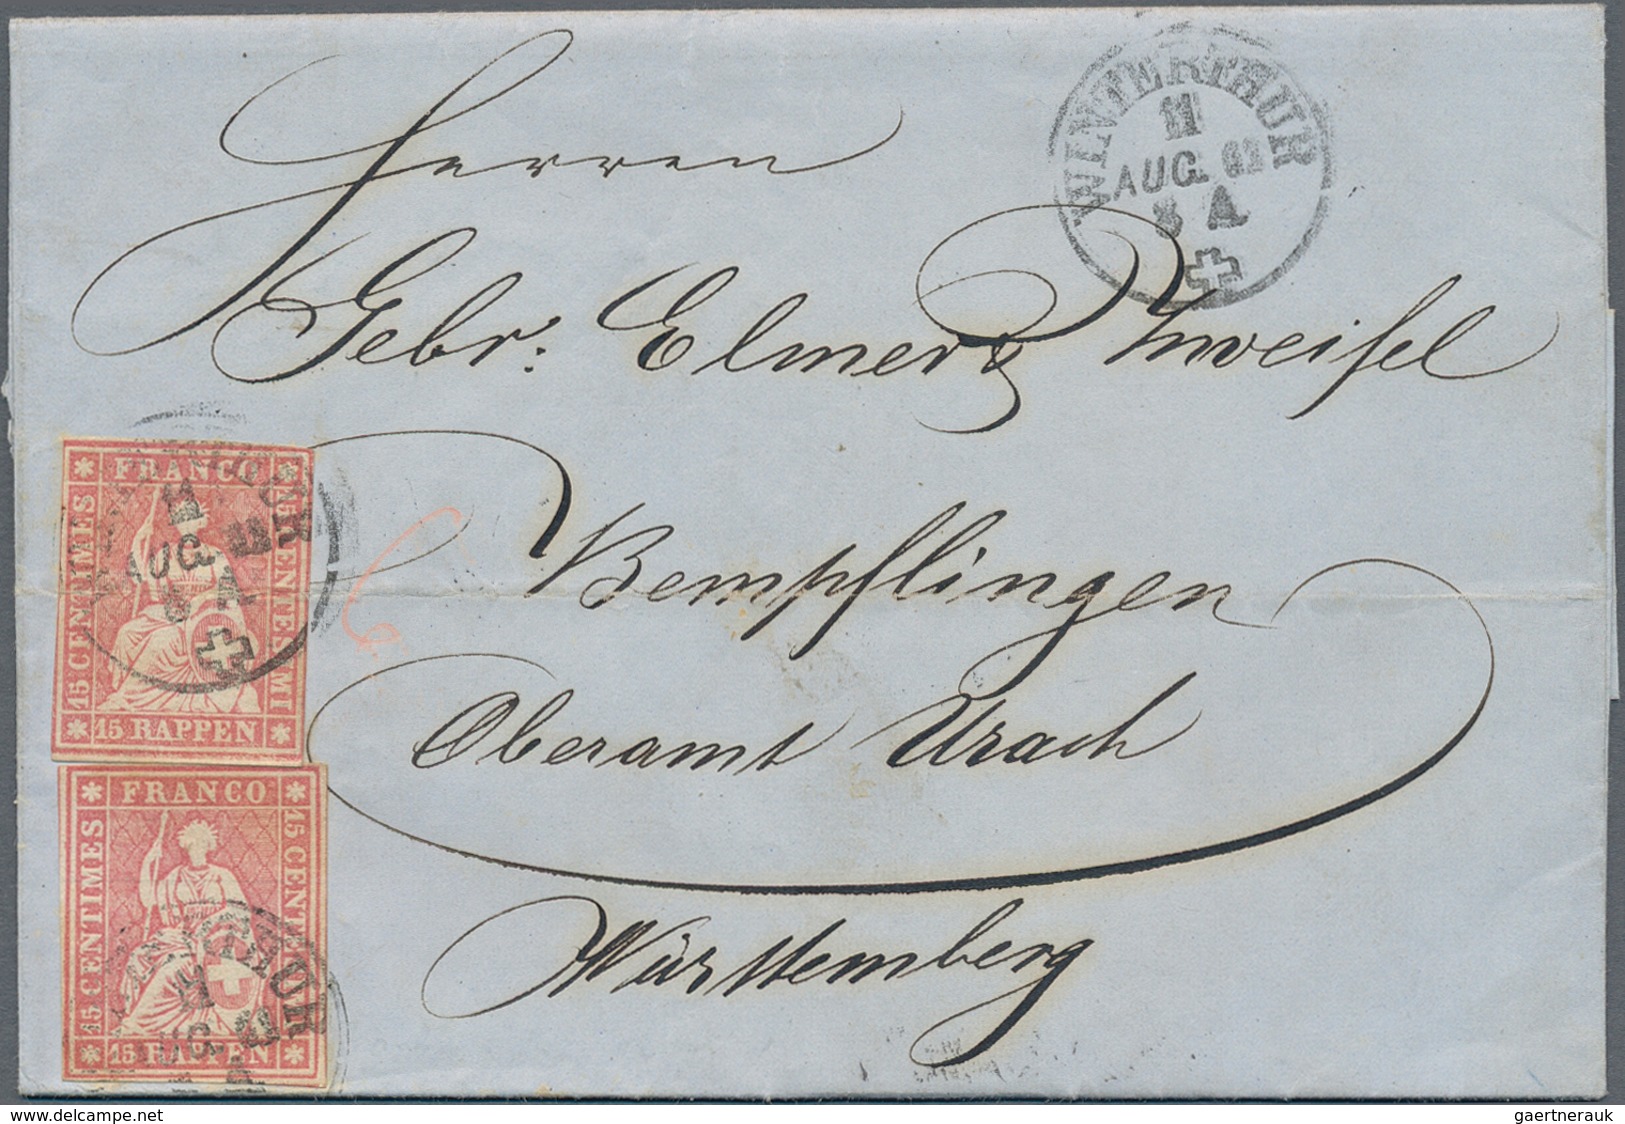 WINTERTHUR
11
AUG. 61
3 A
Herren
Gebr: Elmer & Zweifel
Bempflingen
Oberamt Urach
Württemberg
FRANCO
15 CENTIMES
15 CENTESIMI
15 RAPPEN
11
AUG.
A
FRANCO
15 CENTIMES
15 CENTESIMI
15 RAPPEN
11
AUG. 61
gaertnerauk @ delcampe.net